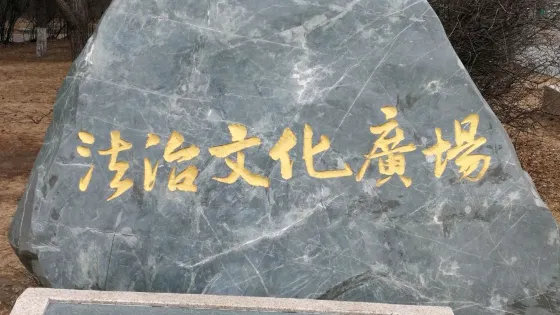 法治文化廣場